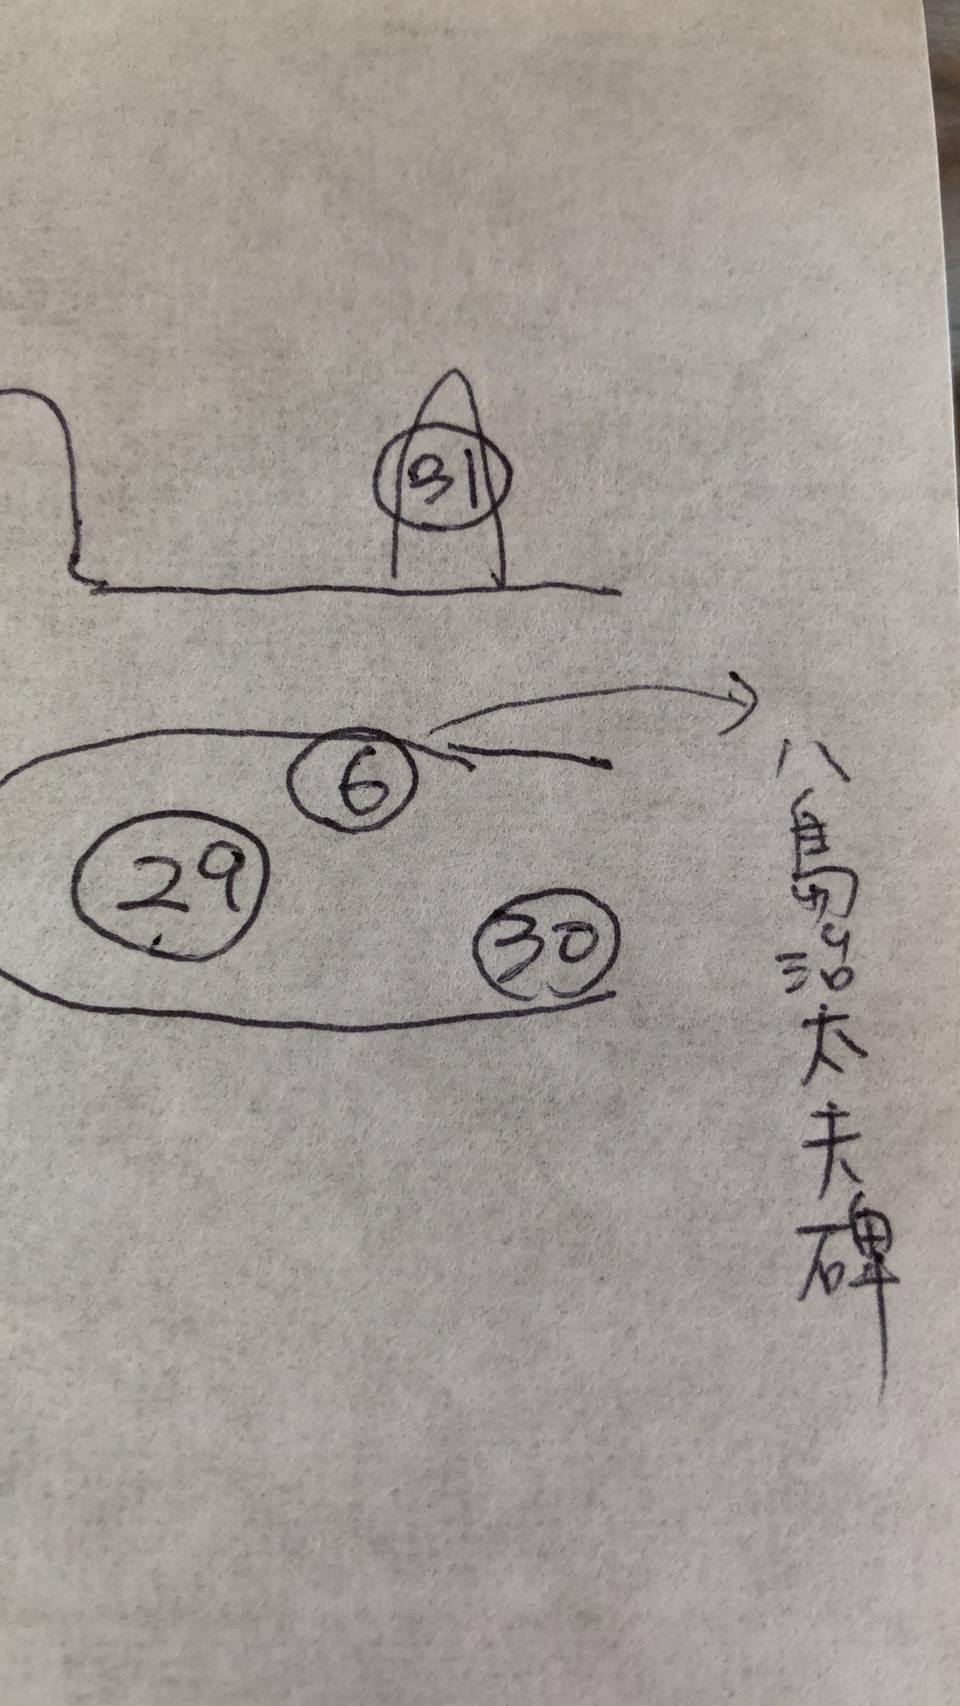 31
6
29
30
八島治太夫碑